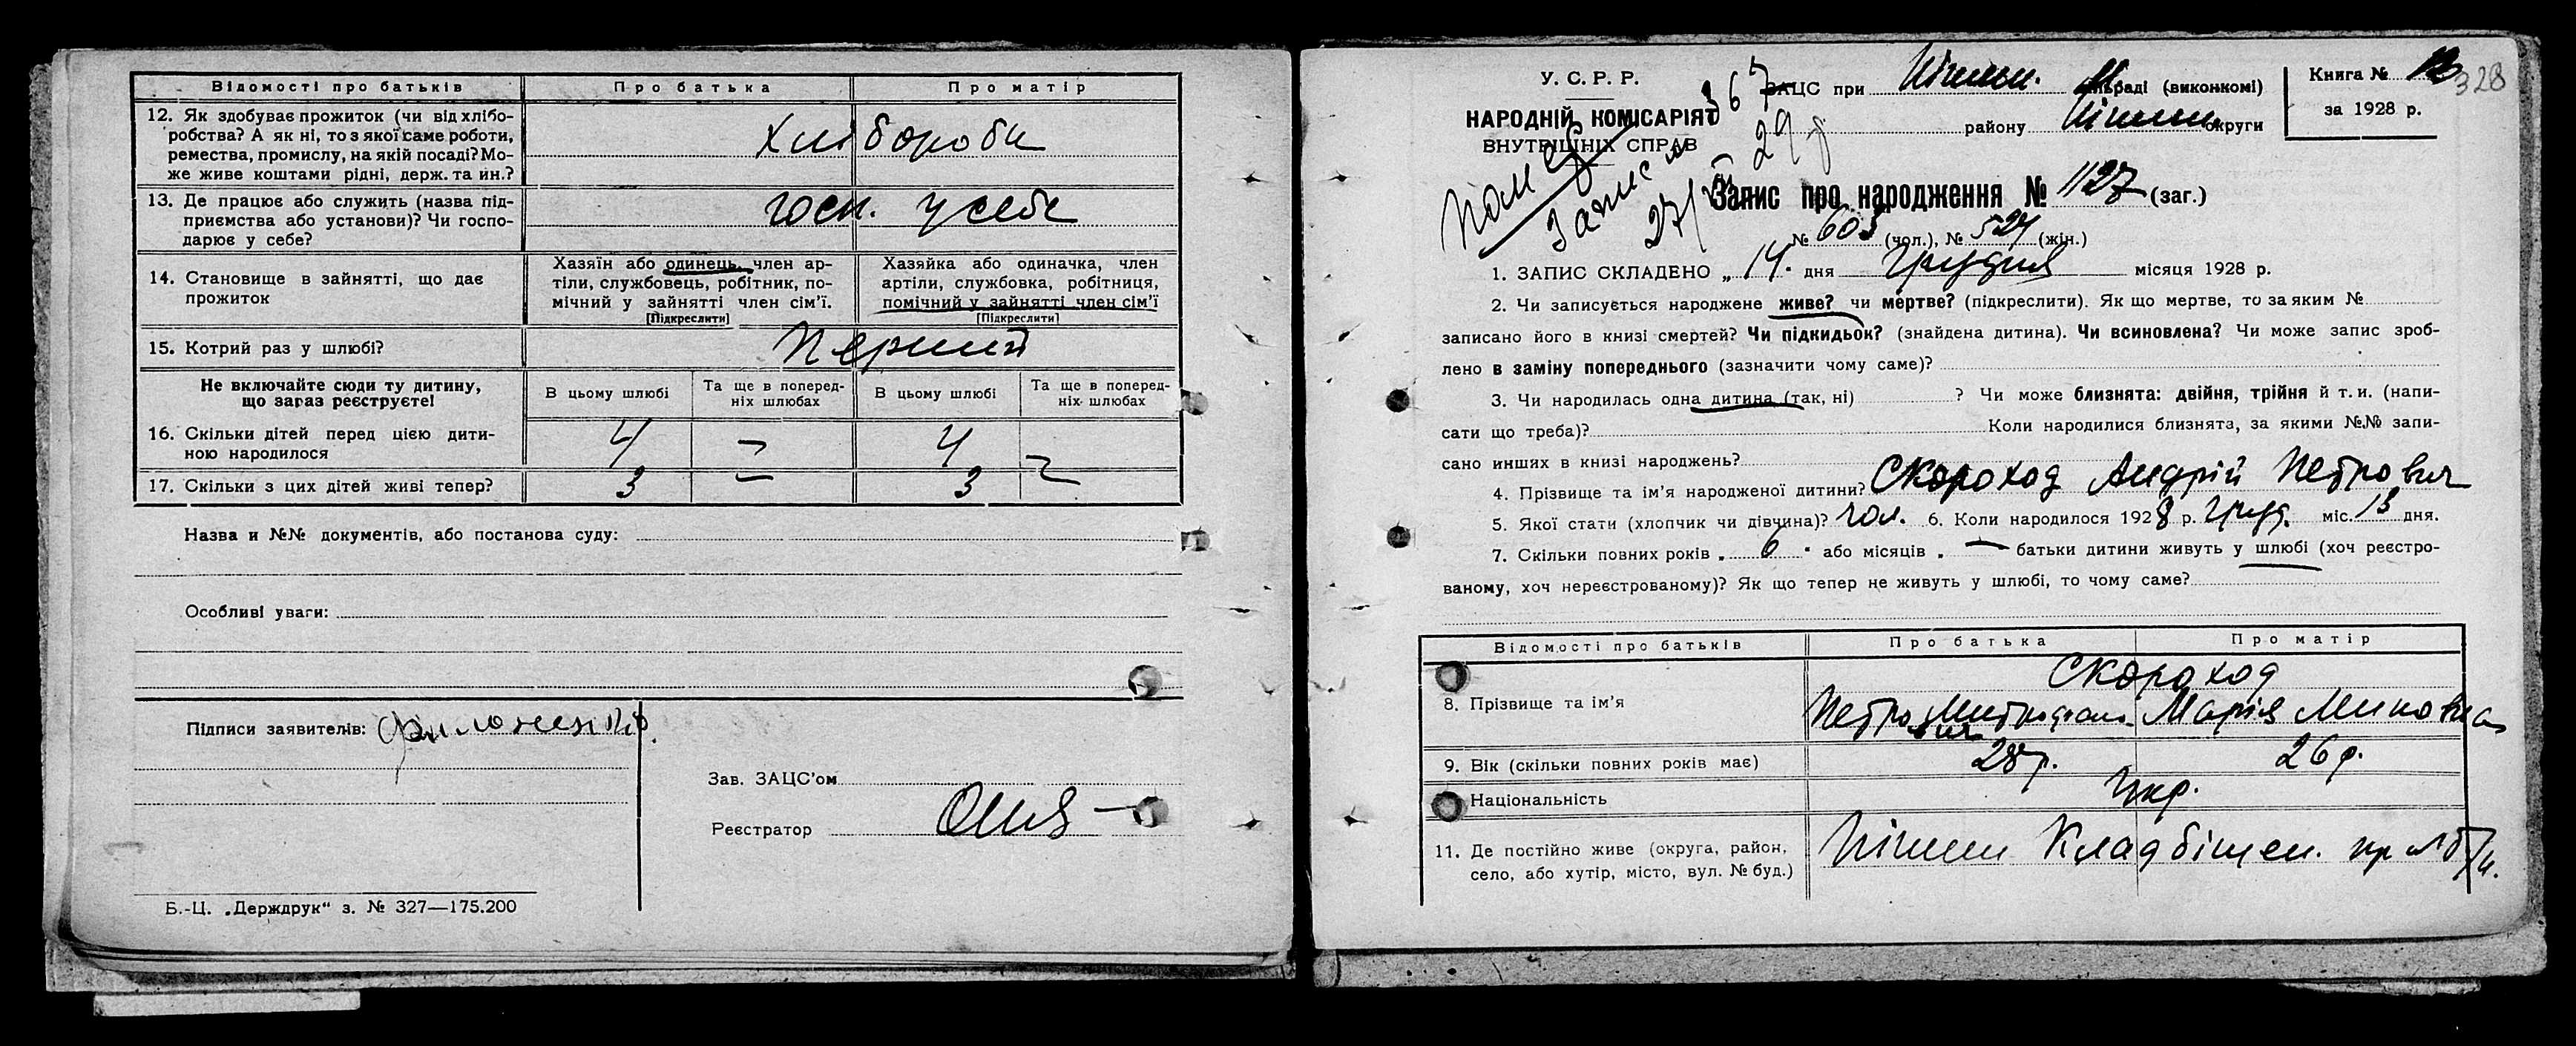 Відомості про батьків Про батька Про матір
12. Як здобуває прожиток (чи від хлібо-
робства? А як ні, то з якої саме роботи,
ремества, промислу, на якій посаді? Мо-
же живе коштами рідні, держ. та ин.?
Хлібороби
13. Де працює або служить (назва під-
приємства або установи)? Чи госпо-
дарює у себе?
госп. у себе
14. Становище в зайнятті, що дає
прожиток
Хазяїн або одинець, член ар-
тіли, службовець, робітник, по-
мічний у зайнятті член сім'ї.
[Підкреслити]
Хазяйка або одиначка, член
артіли, службовка, робітниця,
помічний у зайнятті член сім'ї
[Підкреслити]
15. Котрий раз у шлюбі? Перший
Не включайте сюди ту дитину,
що зараз реєструєте!
В цьому шлюбі
Та ще в поперед-
ніх шлюбах
В цьому шлюбі
Та ще в поперед-
ніх шлюбах
16. Скільки дітей перед цією дити-
ною народилося
4 — 4 —
17. Скільки з цих дітей живі тепер? 3 — 3 —
Назва и №№ документів, або постанова суду:
Особливі уваги:
Підписи заявителів:
Зав. ЗАЦС'ом
Реєстратор
Б.-Ц. „Держдрук" з. № 327—175.200
У. С. Р. Р.
НАРОДНІЙ КОМІСАРІЯТ
ВНУТРІШНІХ СПРАВ
367
ЗАЦС при Ніжин. М. раді (виконкомі)
району Ніжин. округи
Книга № 12
за 1928 р.
328
Запис про народження № 1127 (заг.)
№ 603 (чол.), № 524 (жін.)
1. ЗАПИС СКЛАДЕНО „ 14. дня Грудня місяця 1928 р.
2. Чи записується народжене живе? чи мертве? (підкреслити). Як що мертве, то за яким №
записано його в книзі смертей? Чи підкидьок? (знайдена дитина). Чи всиновлена? Чи може запис зроб-
лено в заміну попереднього (зазначити чому саме)?
3. Чи народилась одна дитина (так, ні) ? Чи може близнята: двійня, трійня й т. и. (напи-
сати що треба)? Коли народилися близнята, за якими №№ запи-
сано инших в книзі народжень?
4. Прізвище та ім'я народженої дитини? Скороход Андрій Петрович
5. Якої стати (хлопчик чи дівчина)? чол. 6. Коли народилося 1928 р. Груд. міс. 13 дня.
7. Скільки повних років „ 6 " або місяців „ — батьки дитини живуть у шлюбі (хоч реєстро-
ваному, хоч нереєстрованому)? Як що тепер не живуть у шлюбі, то чому саме?
Відомості про батьків Про батька Про матір
8. Прізвище та ім'я
Скороход
Петро Митрофанович Марія Миновна
9. Вік (скільки повних років має) 28 р. 26 р.
Національність Укр.
11. Де постійно живе (округа, район,
село, або хутір, місто, вул. № буд.)
Ніжин Кладбіщен.